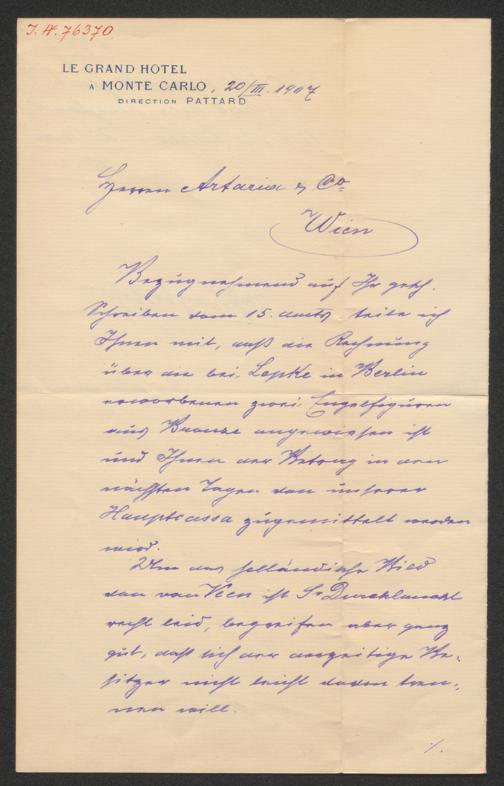 J. N. 76370
LE GRAND HOTEL
À MONTE CARLO, 20/III. 1907
DIRECTION PATTARD
Herren Artaria & Co.
Wien
Bezugnehmend auf Ihr gesch.
Schreiben vom 15. curts teile ich
Ihnen mit, daß die Rechnung
über die bei Lepke in Berlin
erworbenen zwei Engelfiguren
aus Bronze angewiesen ist
und Ihnen der Betrag in den
nächsten Tagen von unserer
Hauptcassa zugemittelt werden
wird.
Um das holländische Bild
von van Veen ist Sr Durchlaucht
recht leid, begreifen aber ganz
gut, daß sich der derzeitige Be-
sitzer nicht leicht davon tren-
nen will.
./.